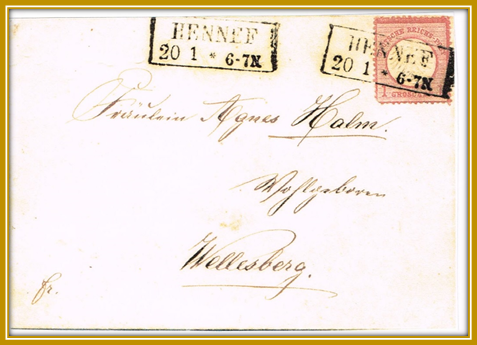 HENNEF
20 1 * 6-7N
HENNEF
20 1 * 6-7N
REICHS-
1 GROSCHEN
Fräulein Agnes Halm.
Wohlgeboren
Wellesberg.
fr.